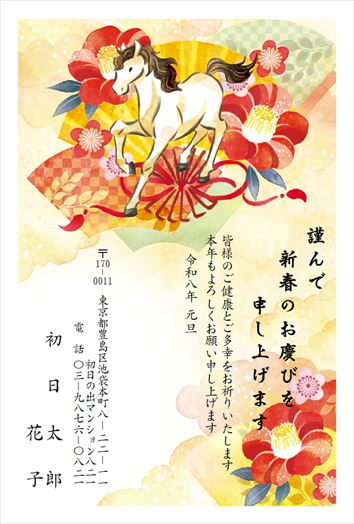 謹んで
新春のお慶びを
申し上げます
皆様のご健康とご多幸をお祈りいたします
本年もよろしくお願い申し上げます
令和八年 元旦
〒170-0011
東京都豊島区池袋本町八-二二-一一
初日の出マンション八二一
電話 〇三-九八七六-〇八二一
初日 太郎
花子